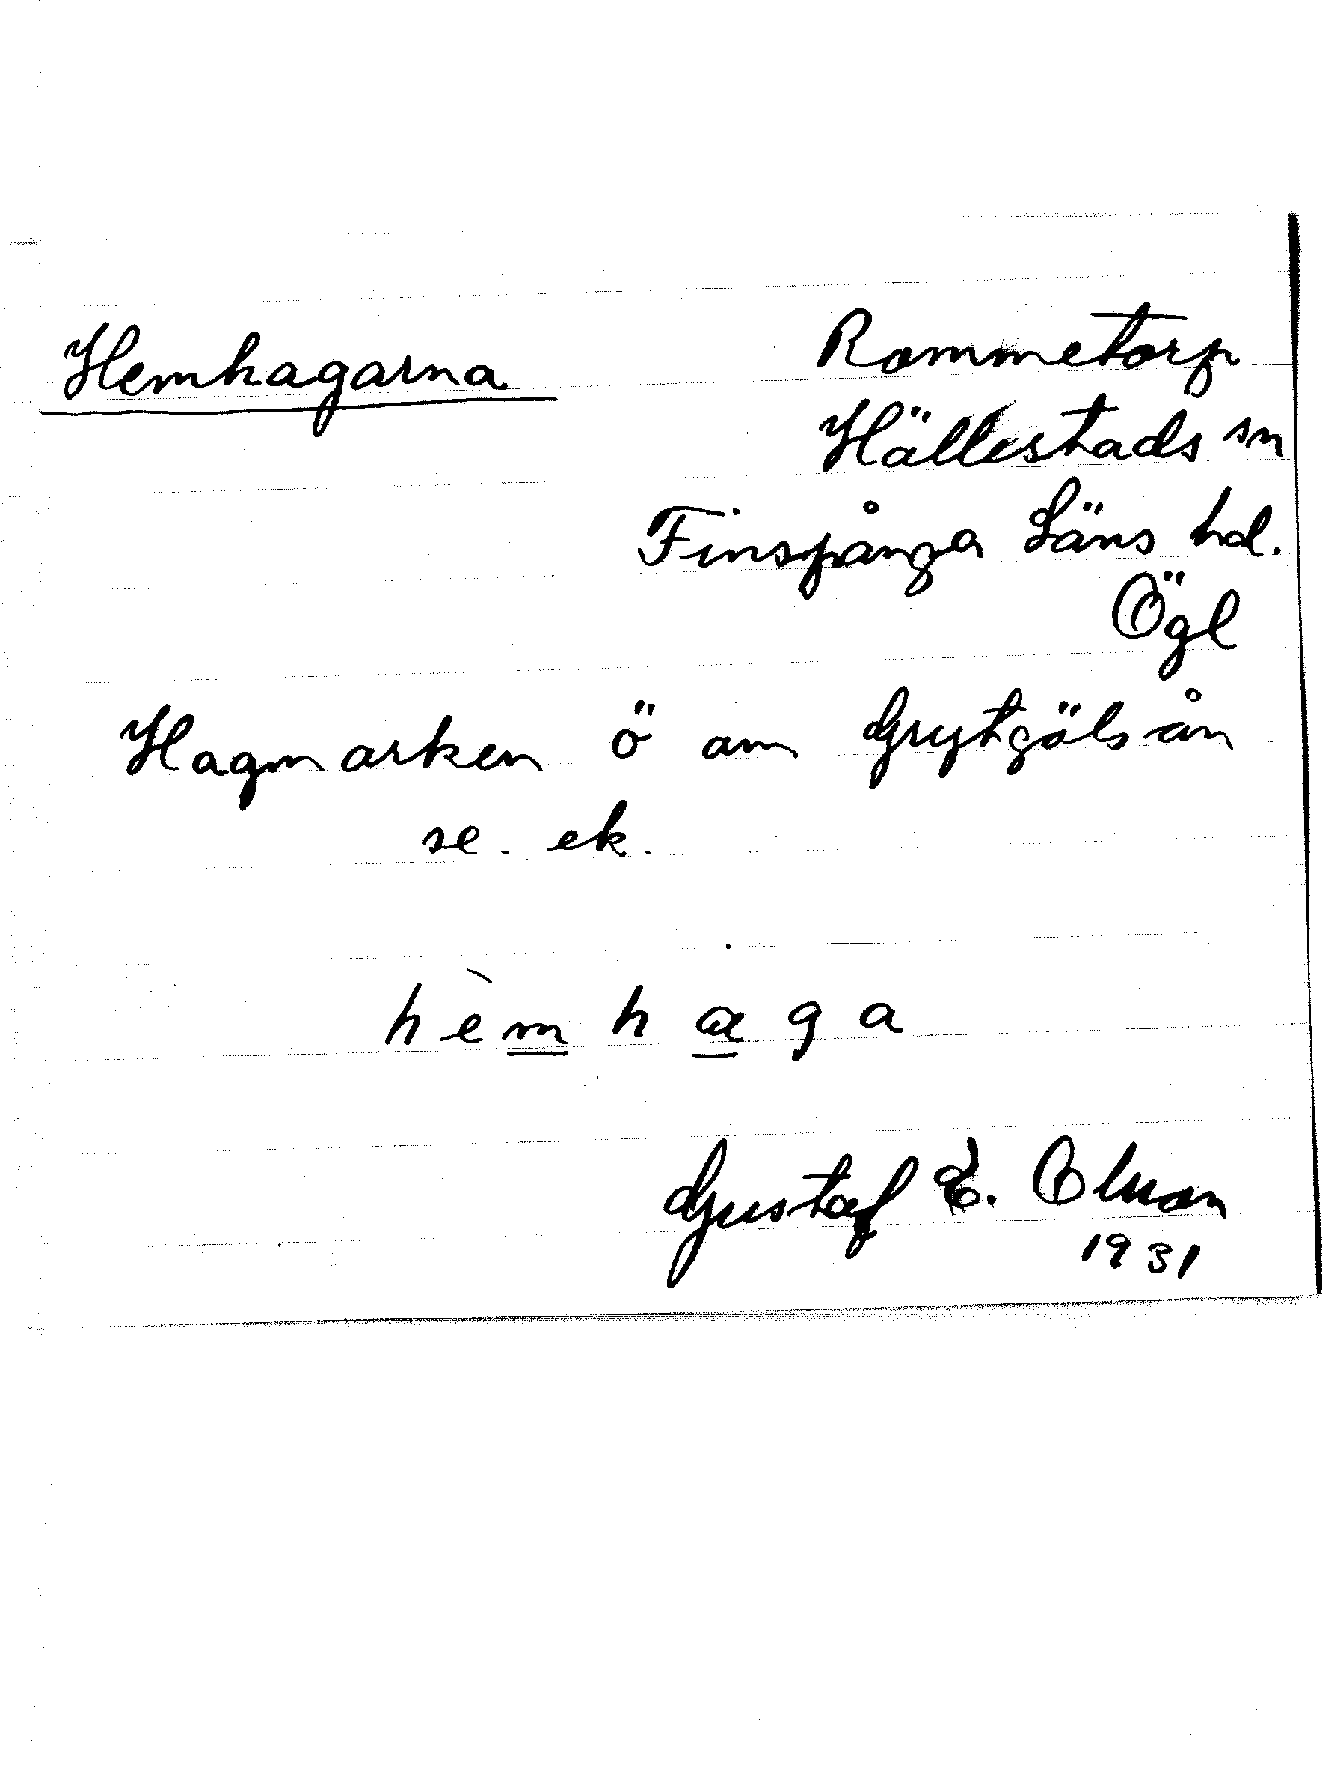 Hemhagarna
Rommetorp
Hällestads sn
Finspånga Läns hd.
Ögl
Hagmarken ö om Grytgölsån
se. ek.
hèmhaga
Gustaf E. Olsson
1931